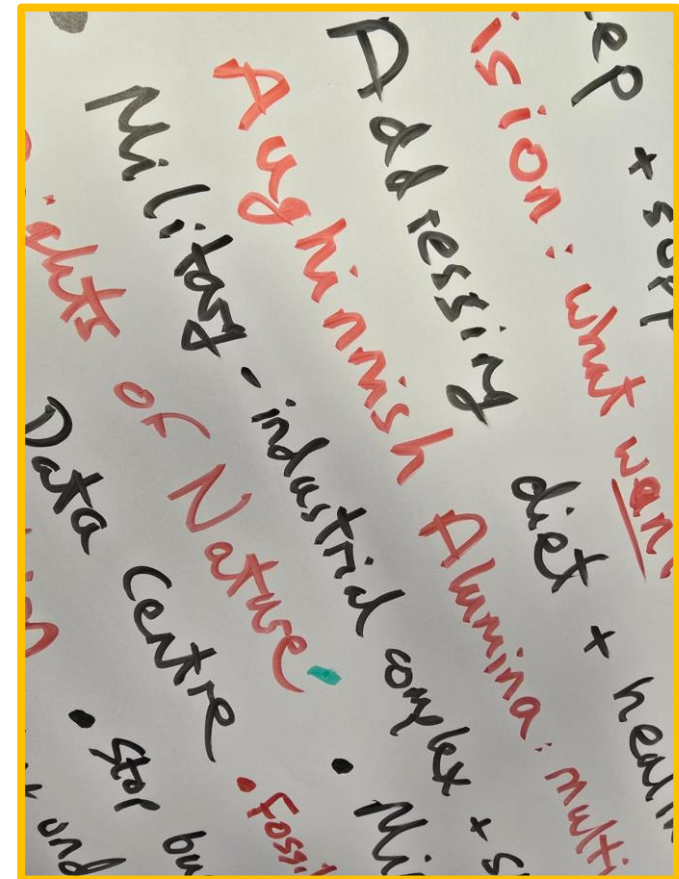 ep + supp
ision: what wan
Addressing diet + heal
Aughinnish Alumina: multi
Military-industrial complex + s
ights of Nature • Mi
Data Centre • Fossi
• Stop bu
ond